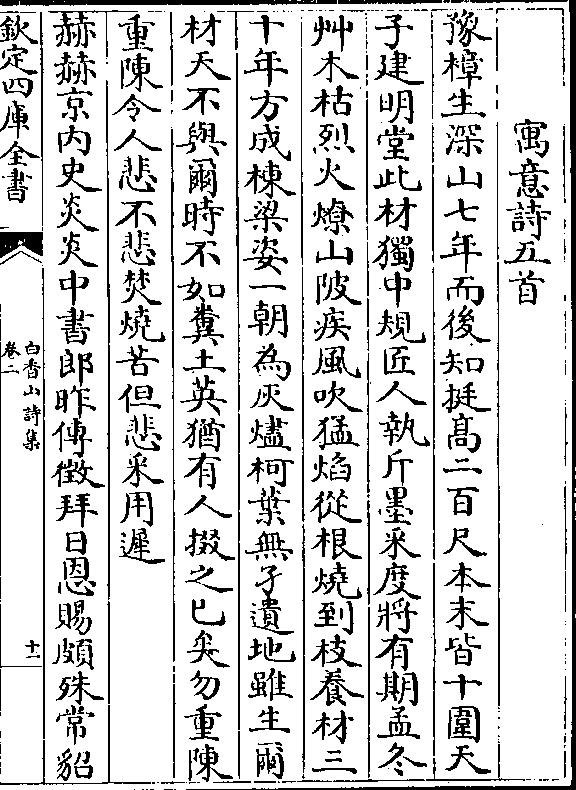 寓意詩五首
豫樟生深山七年而後知挺髙二百尺本末皆十圍天
子建明堂此材獨中規匠人執斤墨采度將有期孟冬
艸木枯烈火燎山陂疾風吹猛焰從根燒到枝養材三
十年方成棟梁姿一朝為灰燼柯葉無孑遺地雖生爾
材天不與爾時不如糞土英猶有人掇之已矣勿重陳
重陳令人悲不悲焚燒苦但悲采用遲
赫赫京内史炎炎中書郎昨傳徵拜日恩賜頗殊常貂
欽定四庫全書
白香山詩集
卷二
十一